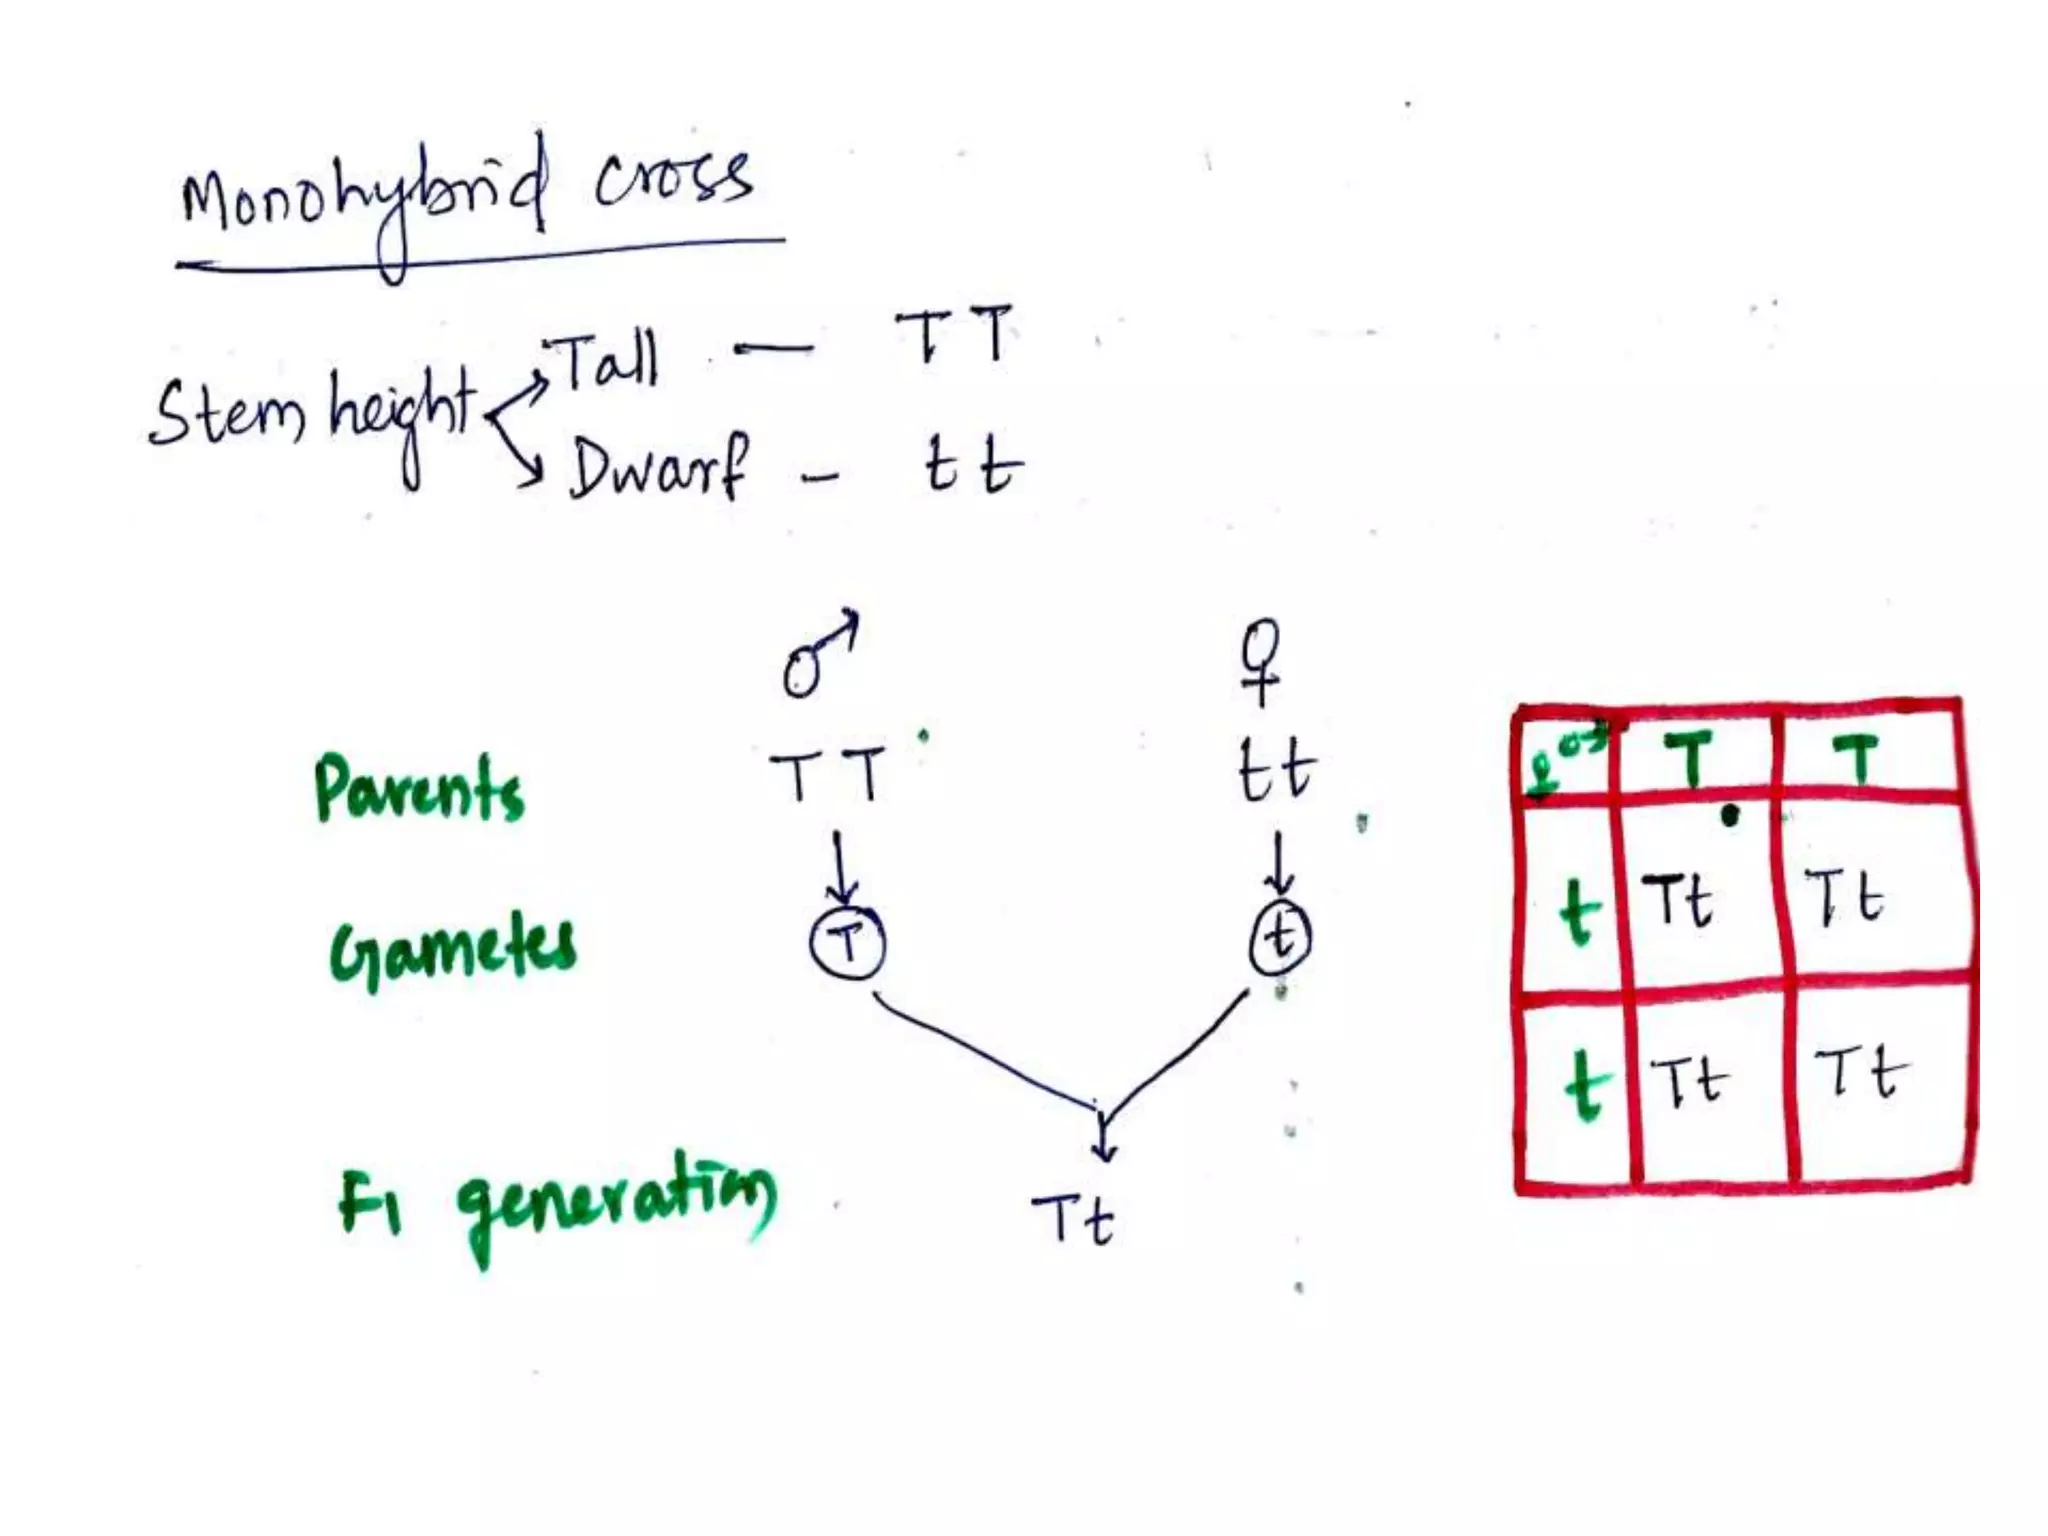 Monohybrid cross
Stem height
Tall — TT
Dwarf - tt
♂ ♀
Parents TT tt
Gametes T t
F1 generation Tt
♀ ♂ T T
t Tt Tt
t Tt Tt